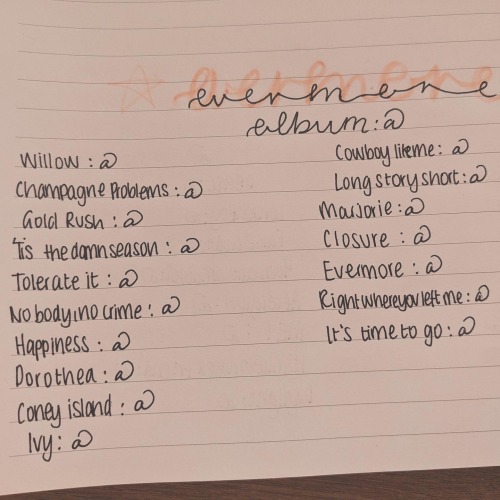 evermore
album: @
Willow : @
Champagne Problems : @
Gold Rush : @
'Tis the damn season : @
Tolerate it : @
No body, no crime : @
Happiness : @
Dorothea : @
Coney island : @
Ivy : @
Cowboy like me : @
Long story short : @
Marjorie : @
Closure : @
Evermore : @
Right where you left me : @
It's time to go : @